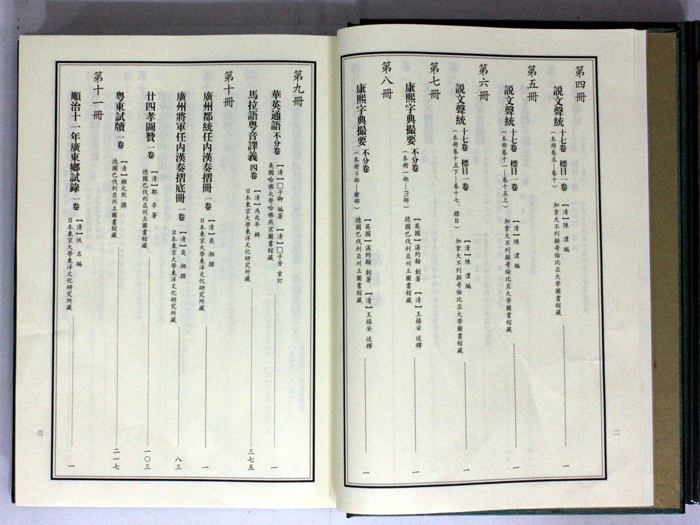 第四冊
說文聲統 十七卷 標目一卷 【清】陳澧 編 一
（本冊卷五—卷十） 加拿大不列顛哥倫比亞大學圖書館藏
第五冊
說文聲統 十七卷 標目一卷 【清】陳澧 編 一
（本冊卷十一—卷十五上） 加拿大不列顛哥倫比亞大學圖書館藏
第六冊
說文聲統 十七卷 標目一卷 【清】陳澧 編 一
（本冊卷十五下—卷十七、標目） 加拿大不列顛哥倫比亞大學圖書館藏
第七冊
康熙字典撮要 不分卷 【英國】湛約翰 創著 【清】王揚安 述釋 一
（本冊一部—彐部） 德國巴伐利亞州立圖書館藏
第八冊
康熙字典撮要 不分卷 【英國】湛約翰 創著 【清】王揚安 述釋 一
德國巴伐利亞州立圖書館藏
二
第九冊
華英通語 不分卷 【清】□子卿 編著 【清】□子芳 重訂 一
美國哈佛大學哈佛燕京圖書館藏
馬拉語粵音譯義 四卷 【清】馮兆年 輯 三七五
日本東京大學東洋文化研究所藏
第十冊
廣州都統任内漢奏摺冊 一卷 【清】奕湘 撰 一
日本東京大學東洋文化研究所藏
廣州將軍任内漢奏摺底冊 一卷 【清】奕湘 撰 八三
日本東京大學東洋文化研究所藏
廿四孝圖贊 一卷 【清】鄭亭 著 一〇三
德國巴伐利亞州立圖書館藏
粵東試牘 一卷 【清】顧元熙 撰 二一七
德國巴伐利亞州立圖書館藏
第十一冊
順治十一年廣東鄉試錄 一卷 【清】佚名 編 一
日本東京大學東洋文化研究所藏
三